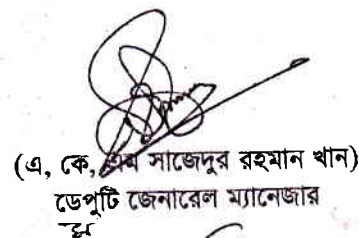 (এ, কে, এম সাজেদুর রহমান খান)
ডেপুটি জেনারেল ম্যানেজার